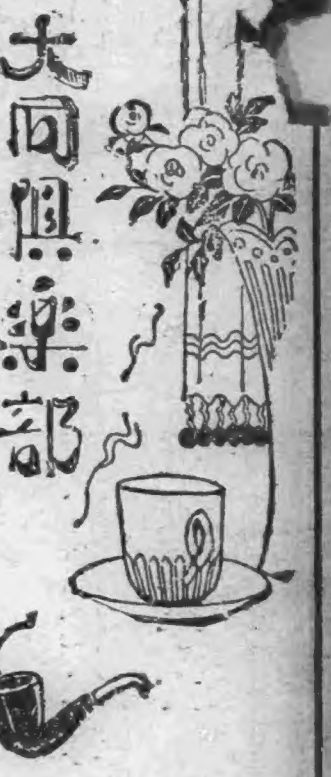 大同俱楽部